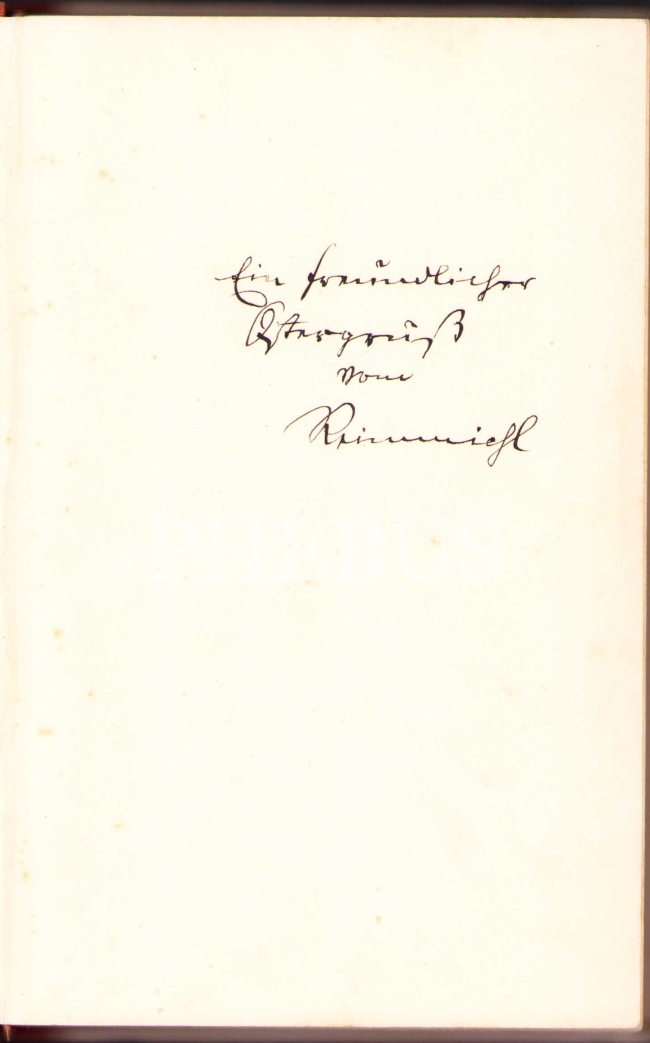 Ein freundlicher
Ostergruß
vom
Reimmichl
PHEBUS